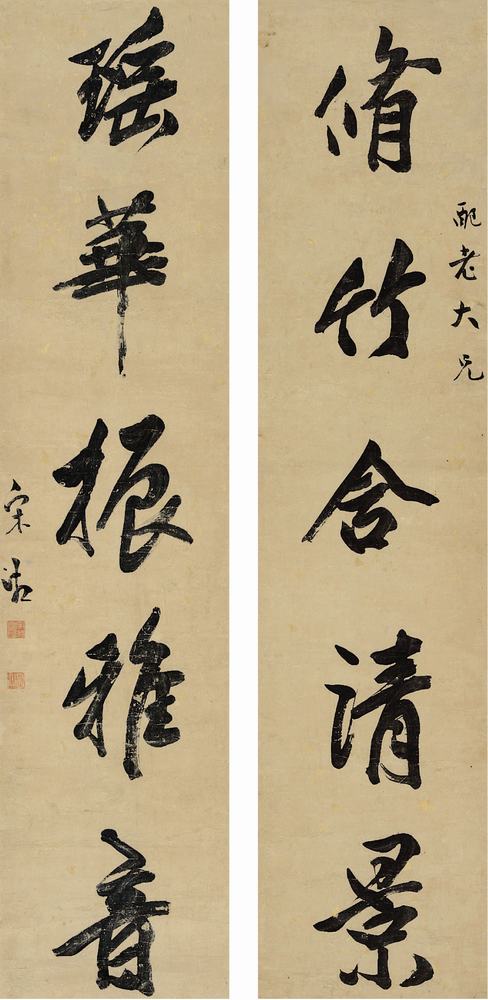 配老大兄
脩竹含清景
瑶華振雅音
宋湘